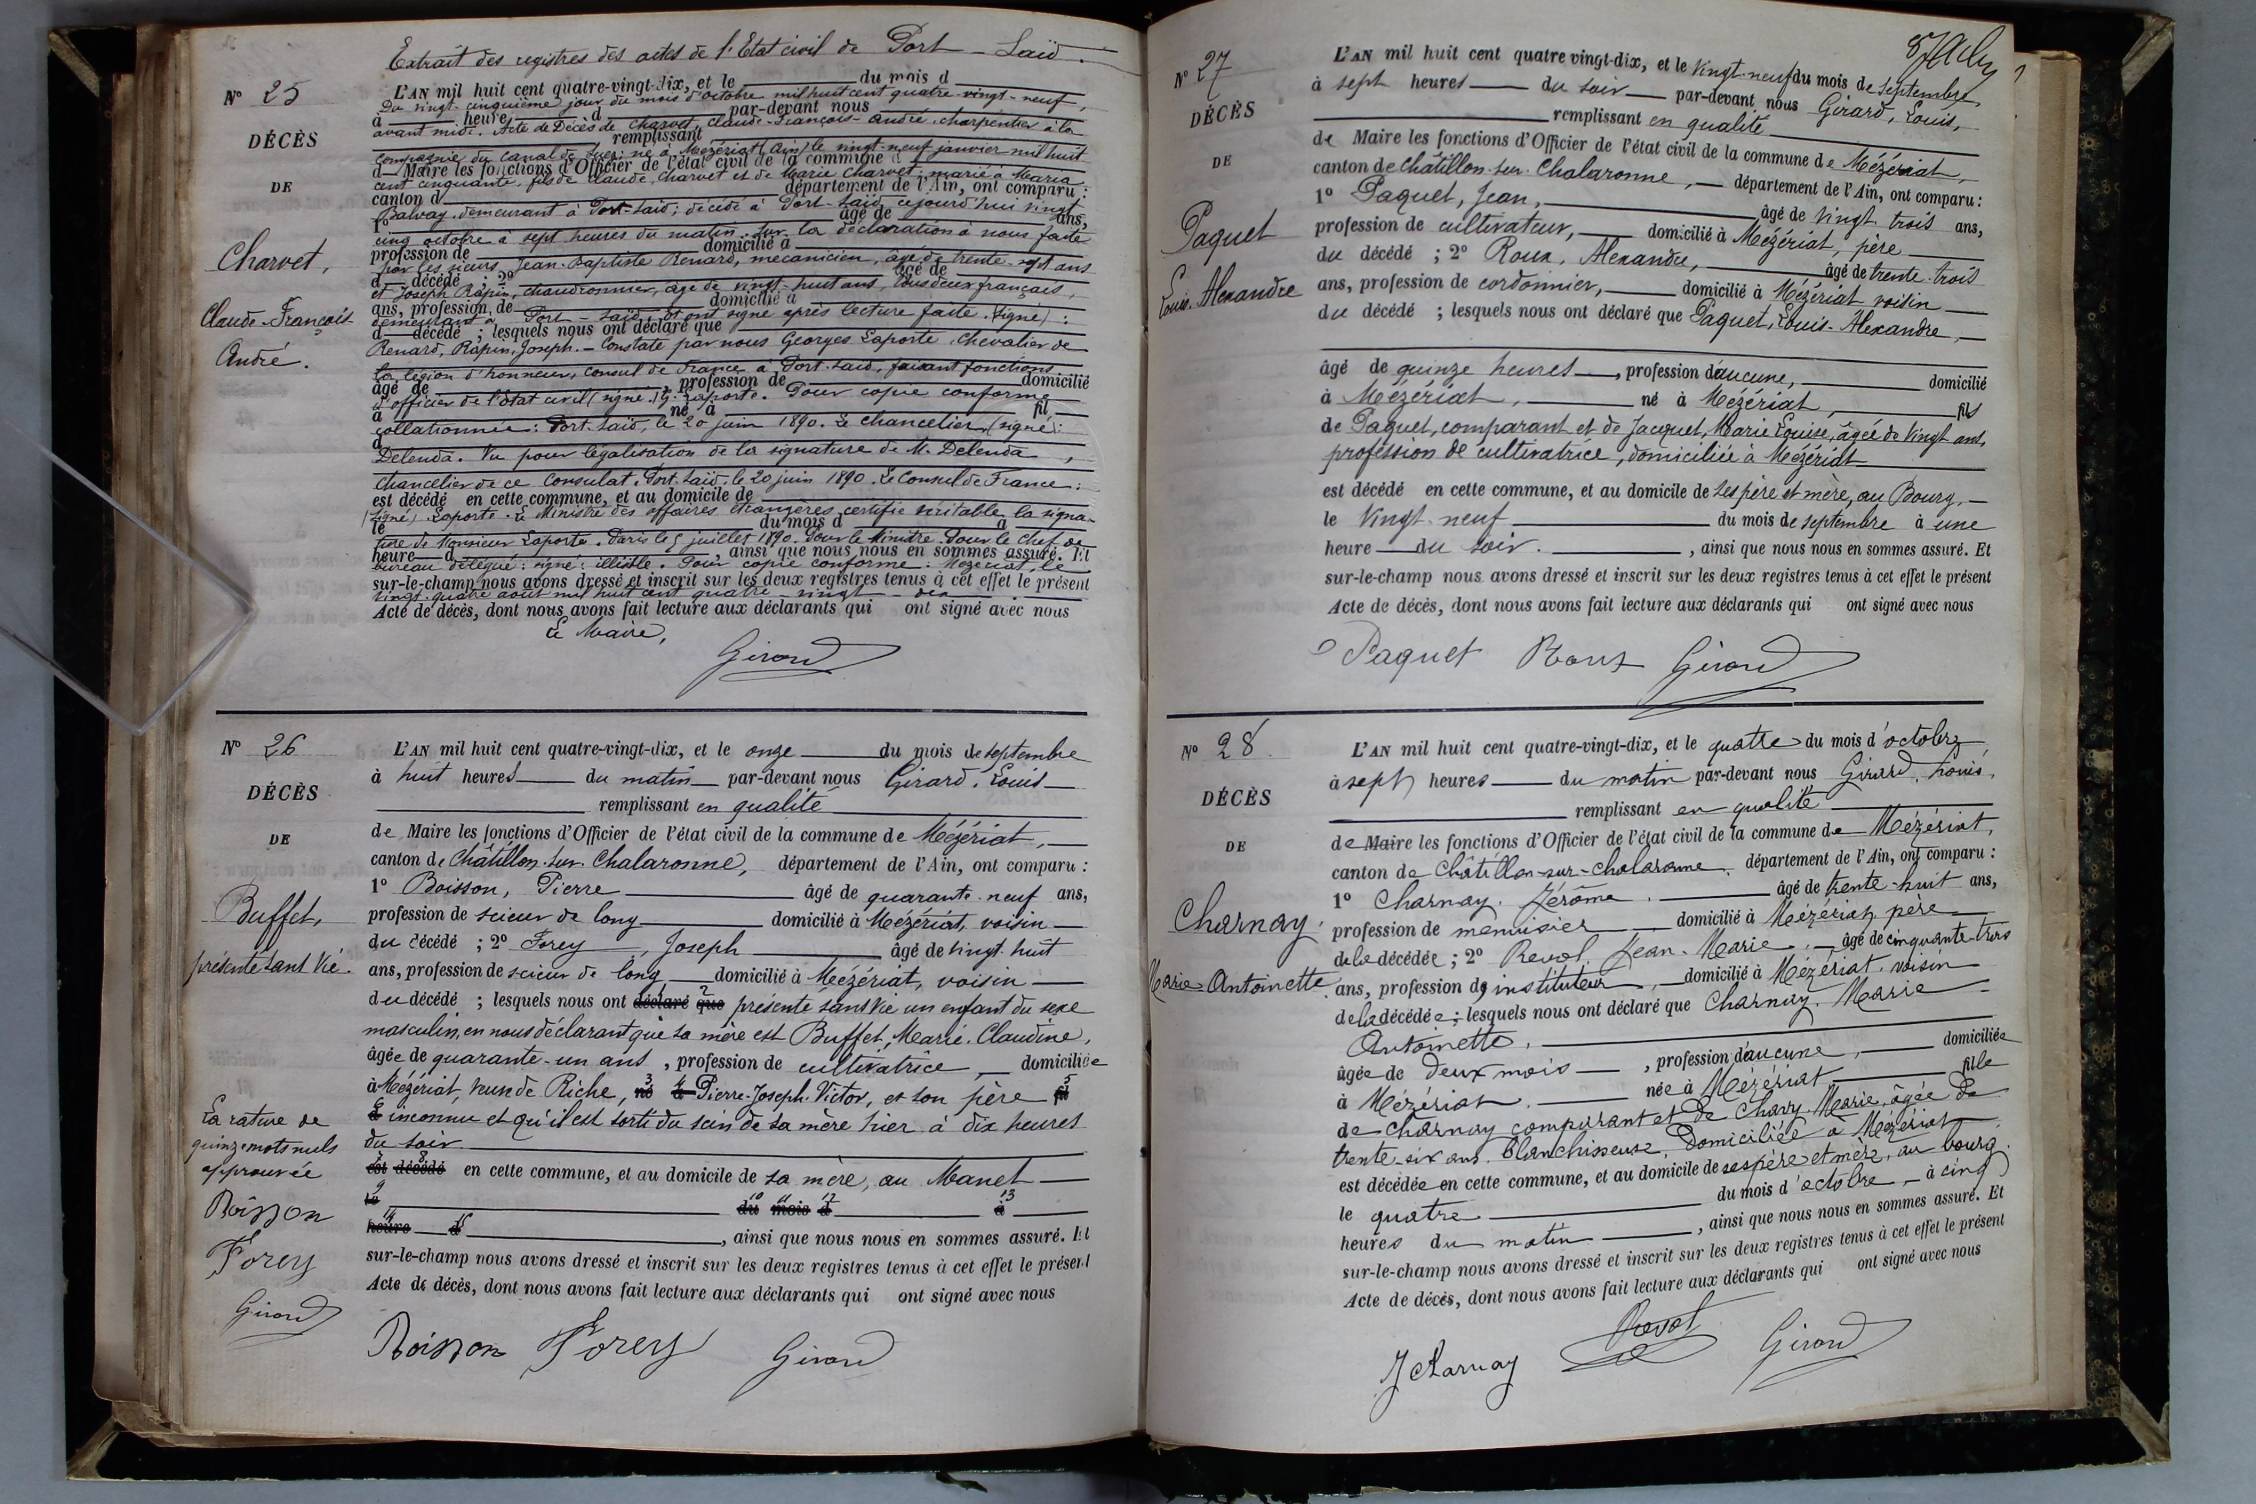 Extrait des registres des actes de l'Etat civil de Port-Saïd.
N° 25
DÉCÈS
DE
Charvet,
Claude-François
André.
L'AN mil huit cent quatre-vingt-dix, et le du mois d
Du vingt-cinquième jour du mois d'octobre mil huit cent quatre-vingt-neuf,
à heure d par-devant nous
avant midi. Acte de Décès de Charvet, Claude-François-André, charpentier à la
remplissant
compagnie du canal de Suez; né à Mézériat (Ain) le vingt-neuf janvier mil huit
d Maire les fonctions d'Officier de l'état civil de la commune d
cent cinquante, fils de Claude Charvet et de Marie Charvet; marié à Maria
canton d département de l'Ain, ont comparu :
Balvay, demeurant à Port-Saïd; décédé à Port-Saïd, cejourd'hui vingt
1° âgé de ans,
cinq octobre à sept heures du matin. Sur la déclaration à nous faite
profession de domicilié à
par les sieurs Jean-Baptiste Renard, mécanicien, âgé de trente-sept ans
d décédé ; 2° âgé de
et Joseph Rapin, chaudronnier, âgé de vingt-huit ans, tous deux français,
ans, profession de domicilié à
demeurant à Port-Saïd, et ont signé après lecture faite. (Signé) :
d décédé ; lesquels nous ont déclaré que
Renard, Rapin, Joseph. - Constaté par nous Georges Laporte, Chevalier de
la légion d'honneur, consul de France à Port-Saïd, faisant fonctions
âgé de , profession de domicilié
d'officier de l'état civil (signé): G. Laporte. Pour copie conforme
à né à fil
collationnée: Port-Saïd, le 20 juin 1890. Le Chancelier, (signé):
d
Delenda. Vu pour légalisation de la signature de M. Delenda ,
chancelier de ce Consulat. Port-Saïd, le 20 juin 1890. Le Consul de France:
est décédé en cette commune, et au domicile de
(signé) Laporte. Le Ministre des affaires étrangères certifie véritable la signa-
le du mois d à
ture de Monsieur Laporte. Paris le 5 juillet 1890. Pour le Ministre. Pour le Chef de
heure d , ainsi que nous nous en sommes assuré. Et
bureau délégué: signé: illisible. Pour copie conforme: Mézériat, le
sur-le-champ nous avons dressé et inscrit sur les deux registres tenus à cet effet le présent
vingt-quatre août mil huit cent quatre-vingt-dix
Acte de décès, dont nous avons fait lecture aux déclarants qui ont signé avec nous
Le Maire,
Girard
N° 26
DÉCÈS
DE
Buffet,
présenté sans vie.
L'AN mil huit cent quatre-vingt-dix, et le onze du mois de septembre
à huit heures du matin par-devant nous Girard, Louis
remplissant en qualité
de Maire les fonctions d'Officier de l'état civil de la commune de Mézériat,
canton de Châtillon-sur-Chalaronne, département de l'Ain, ont comparu :
1° Boisson, Pierre âgé de quarante-neuf ans,
profession de scieur de long domicilié à Mézériat, voisin
du décédé ; 2° Forey, Joseph âgé de vingt-huit
ans, profession de scieur de long domicilié à Mézériat, voisin
du décédé ; lesquels nous ont déclaré 1 que 2 présenté sans vie un enfant du sexe
masculin, en nous déclarant que sa mère est Buffet, Marie-Claudine,
âgée de quarante-un ans , profession de cultivatrice, domiciliée
à Mézériat, veuve de Riche, né 3 à 4 Pierre-Joseph-Victor, et son père fil 5
d 6 inconnu et qu'il est sorti du sein de sa mère hier à dix heures
du soir
est 7 décédé 8 en cette commune, et au domicile de sa mère, au Manet
le 9 du 10 mois 11 d 12 à 13
heure 14 d 15 , ainsi que nous nous en sommes assuré. Et
sur-le-champ nous avons dressé et inscrit sur les deux registres tenus à cet effet le présent
Acte de décès, dont nous avons fait lecture aux déclarants qui ont signé avec nous
La rature de
quinze mots nuls
approuvée
Boisson
Forey
Girard
Boisson Forey Girard
87
N° 27
DÉCÈS
DE
Paquet
Louis-Alexandre
L'AN mil huit cent quatre vingt-dix, et le vingt-neuf du mois de septembre,
à sept heures du soir par-devant nous Girard, Louis,
remplissant en qualité
de Maire les fonctions d'Officier de l'état civil de la commune de Mézériat,
canton de Châtillon-sur-Chalaronne, département de l'Ain, ont comparu :
1° Paquet, Jean, âgé de vingt-trois ans,
profession de cultivateur, domicilié à Mézériat, père
du décédé ; 2° Roux, Alexandre, âgé de trente-trois
ans, profession de cordonnier, domicilié à Mézériat voisin
du décédé ; lesquels nous ont déclaré que Paquet, Louis-Alexandre,
âgé de quinze heures , profession d'aucune, domicilié
à Mézériat, né à Mézériat, fils
de Paquet, comparant et de Jacquet, Marie Louise, âgée de vingt ans,
profession de cultivatrice, domiciliée à Mézériat
est décédé en cette commune, et au domicile de ses père et mère, au Bourg,
le vingt-neuf du mois de septembre à une
heure du soir. , ainsi que nous nous en sommes assuré. Et
sur-le-champ nous avons dressé et inscrit sur les deux registres tenus à cet effet le présent
Acte de décès, dont nous avons fait lecture aux déclarants qui ont signé avec nous
Paquet Roux Girard
N° 28.
DÉCÈS
DE
Charnay.
Marie Antoinette.
L'AN mil huit cent quatre-vingt-dix, et le quatre du mois d'octobre
à sept heures du matin par-devant nous Girard, Louis,
remplissant en qualité
de Maire les fonctions d'Officier de l'état civil de la commune de Mézériat,
canton de Châtillon-sur-Chalaronne, département de l'Ain, ont comparu :
1° Charnay, Jérôme, âgé de trente-huit ans,
profession de menuisier domicilié à Mézériat, père
de la décédée ; 2° Revol, Jean-Marie, âgé de cinquante-trois
ans, profession d'instituteur, domicilié à Mézériat, voisin
de la décédée ; lesquels nous ont déclaré que Charnay, Marie
Antoinette,
âgée de deux mois , profession d'aucune, domiciliée
à Mézériat, née à Mézériat fille
de Charnay comparant et de Chavy, Marie, âgée de
trente-six ans, blanchisseuse, domiciliée à Mézériat
est décédée en cette commune, et au domicile de ses père et mère, au bourg.
le quatre du mois d'octobre, à cinq
heures du matin , ainsi que nous nous en sommes assuré. Et
sur-le-champ nous avons dressé et inscrit sur les deux registres tenus à cet effet le présent
Acte de décès, dont nous avons fait lecture aux déclarants qui ont signé avec nous
J Charnay Revol Girard